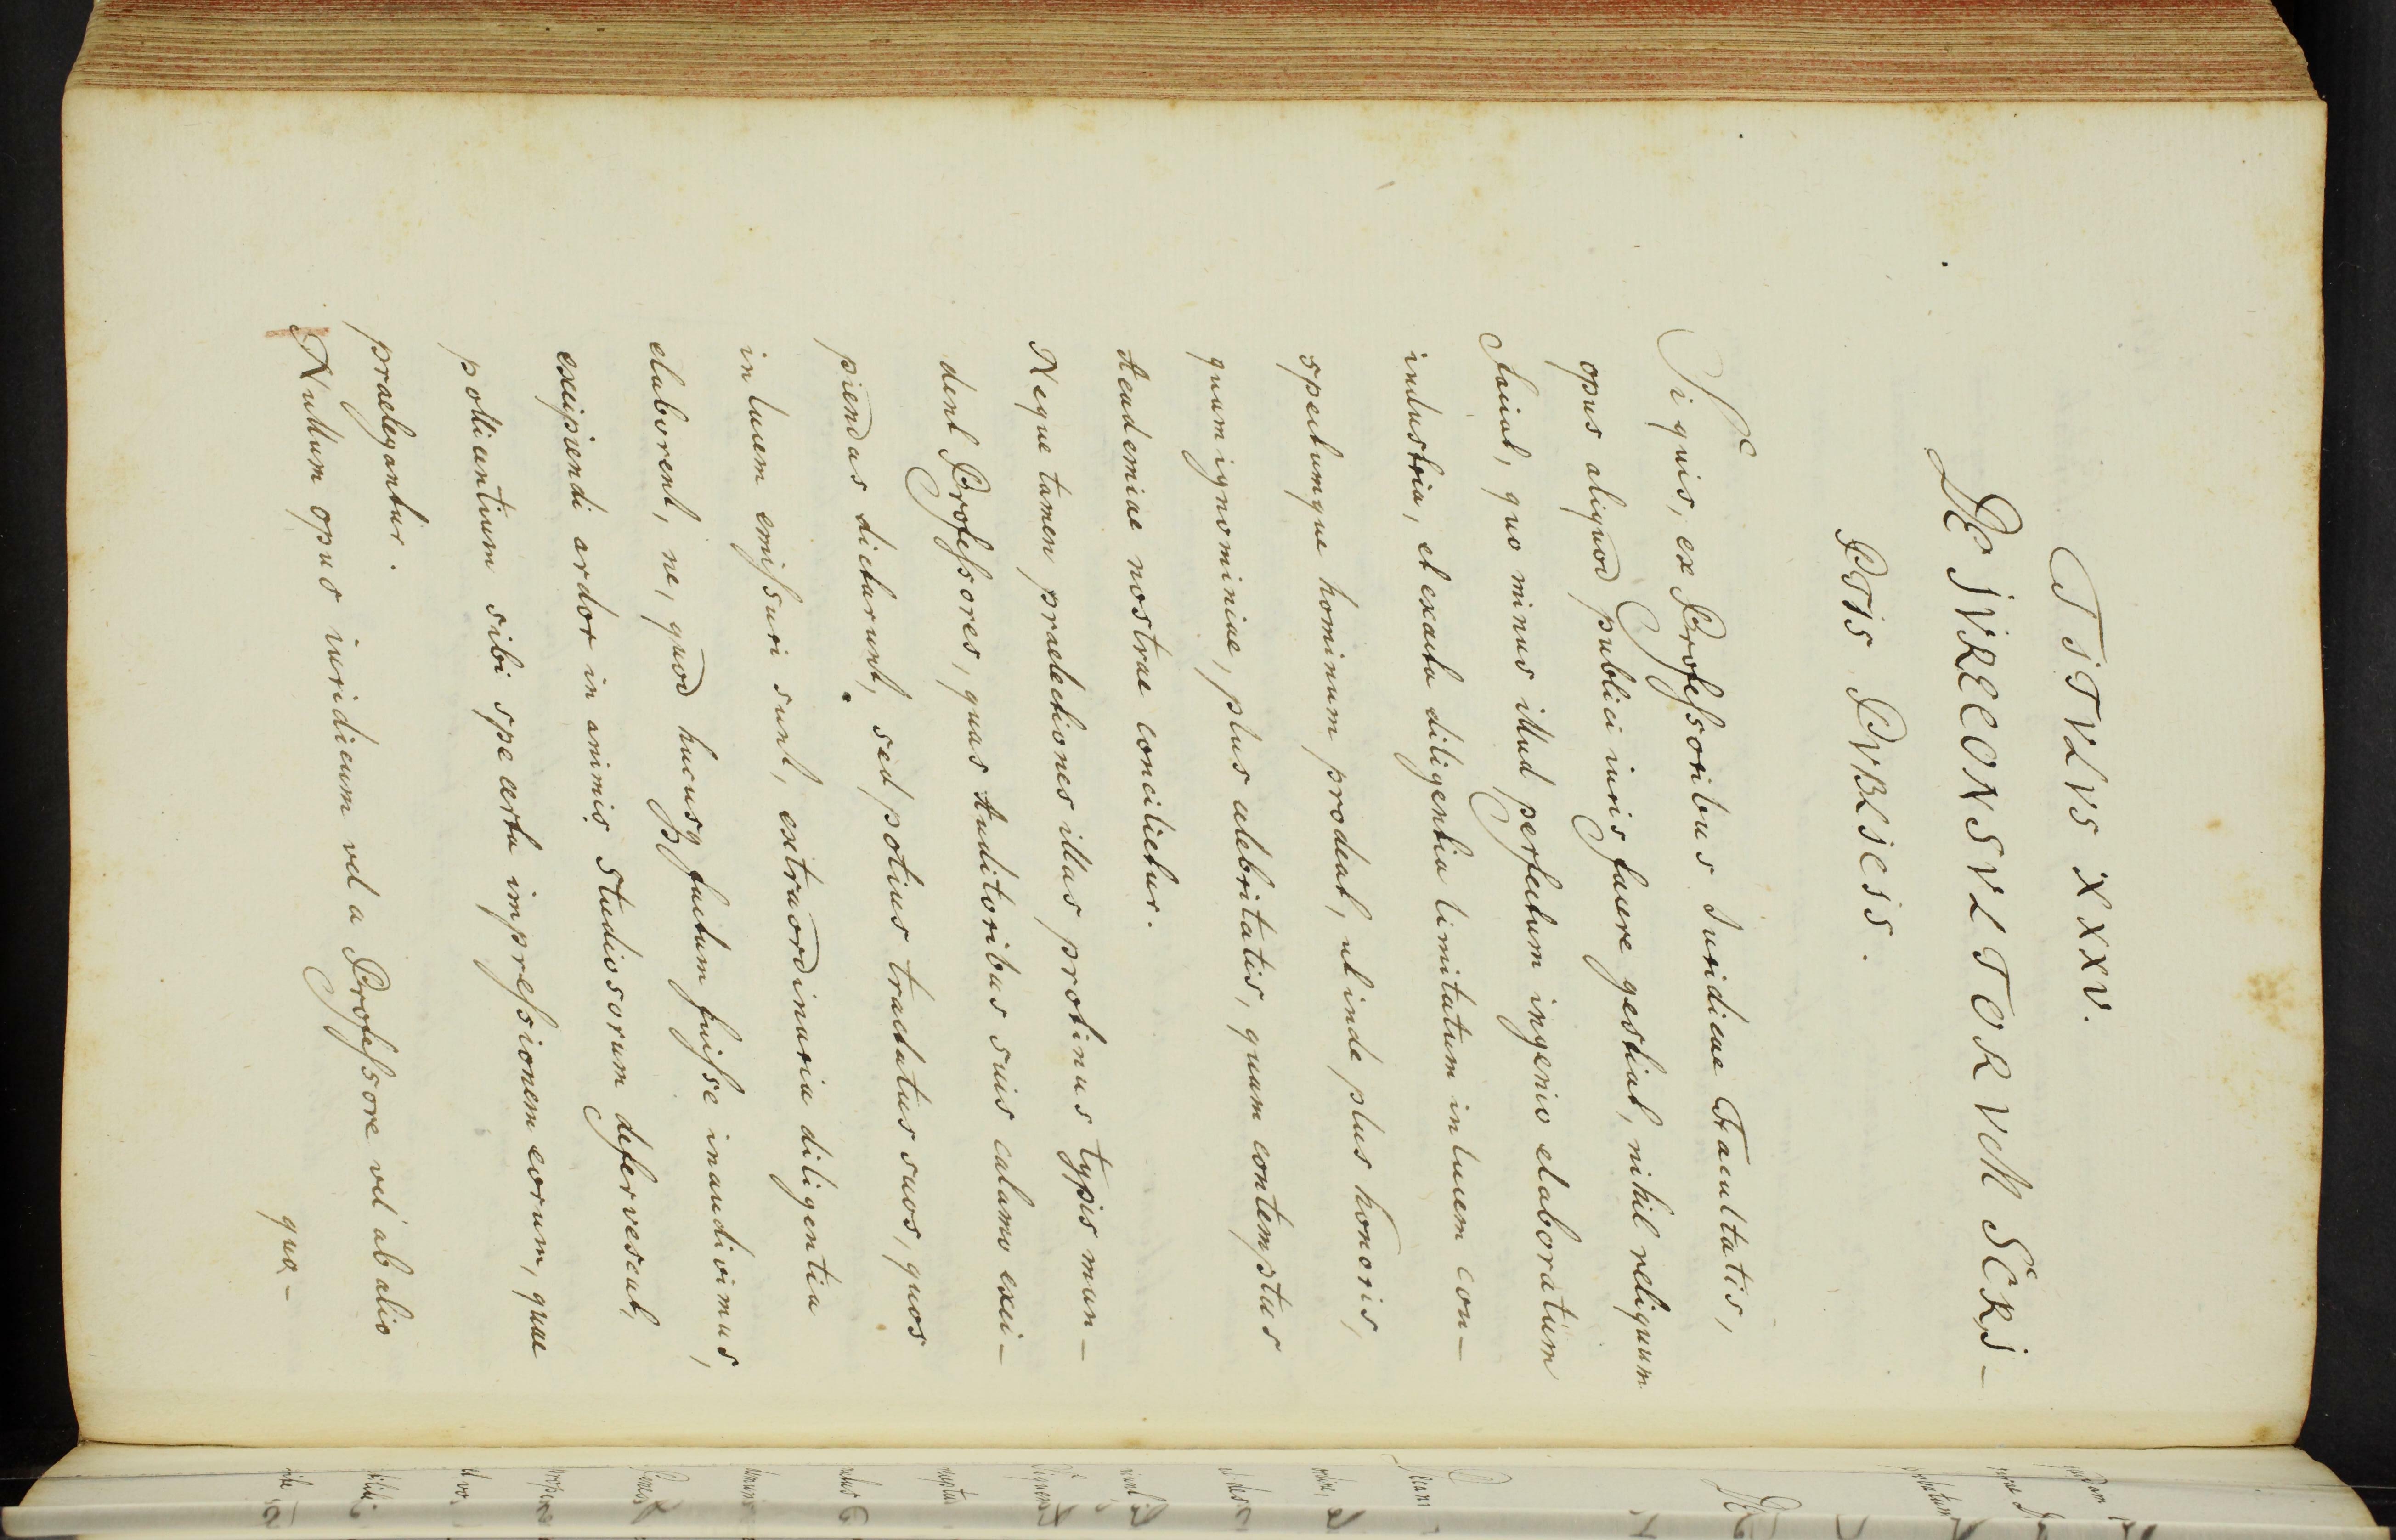 TITVLVS XXXV.
DE IVRECONSVLTORVM SCRI-
PTIS PVBLICIS.
Si quis, ex Professoribus Juridicae Facultatis,
opus aliquod publici iuris facere gestiat, nihil reliquum
faciat, quo minus illud perfectum ingenio elaboratum
industria, et exacta diligentia limitatum in lucem con-
spectumque hominum prodeat, ut inde plus honoris,
quam ignominiae, plus celebritatis, quam contemptus
Academiae nostrae concilietur.
Neque tamen praelectiones illas protinus typis man-
dent Professores, quas Auditoribus suis calamo exci-
piendas dictarunt, sed potius tractatus suos, quos
in lucem emissuri sunt, extraordinaria diligentia
elaborent, ne, quod hucusq₃ factum fuisse inaudivimus,
excipiendi ardor in animis Studiosorum defervescat,
pollicentium sibi spe certa impressionem eorum, quae
praelegantur.
Nullum opus iuridicum vel a Professore vel ab alio
quo-